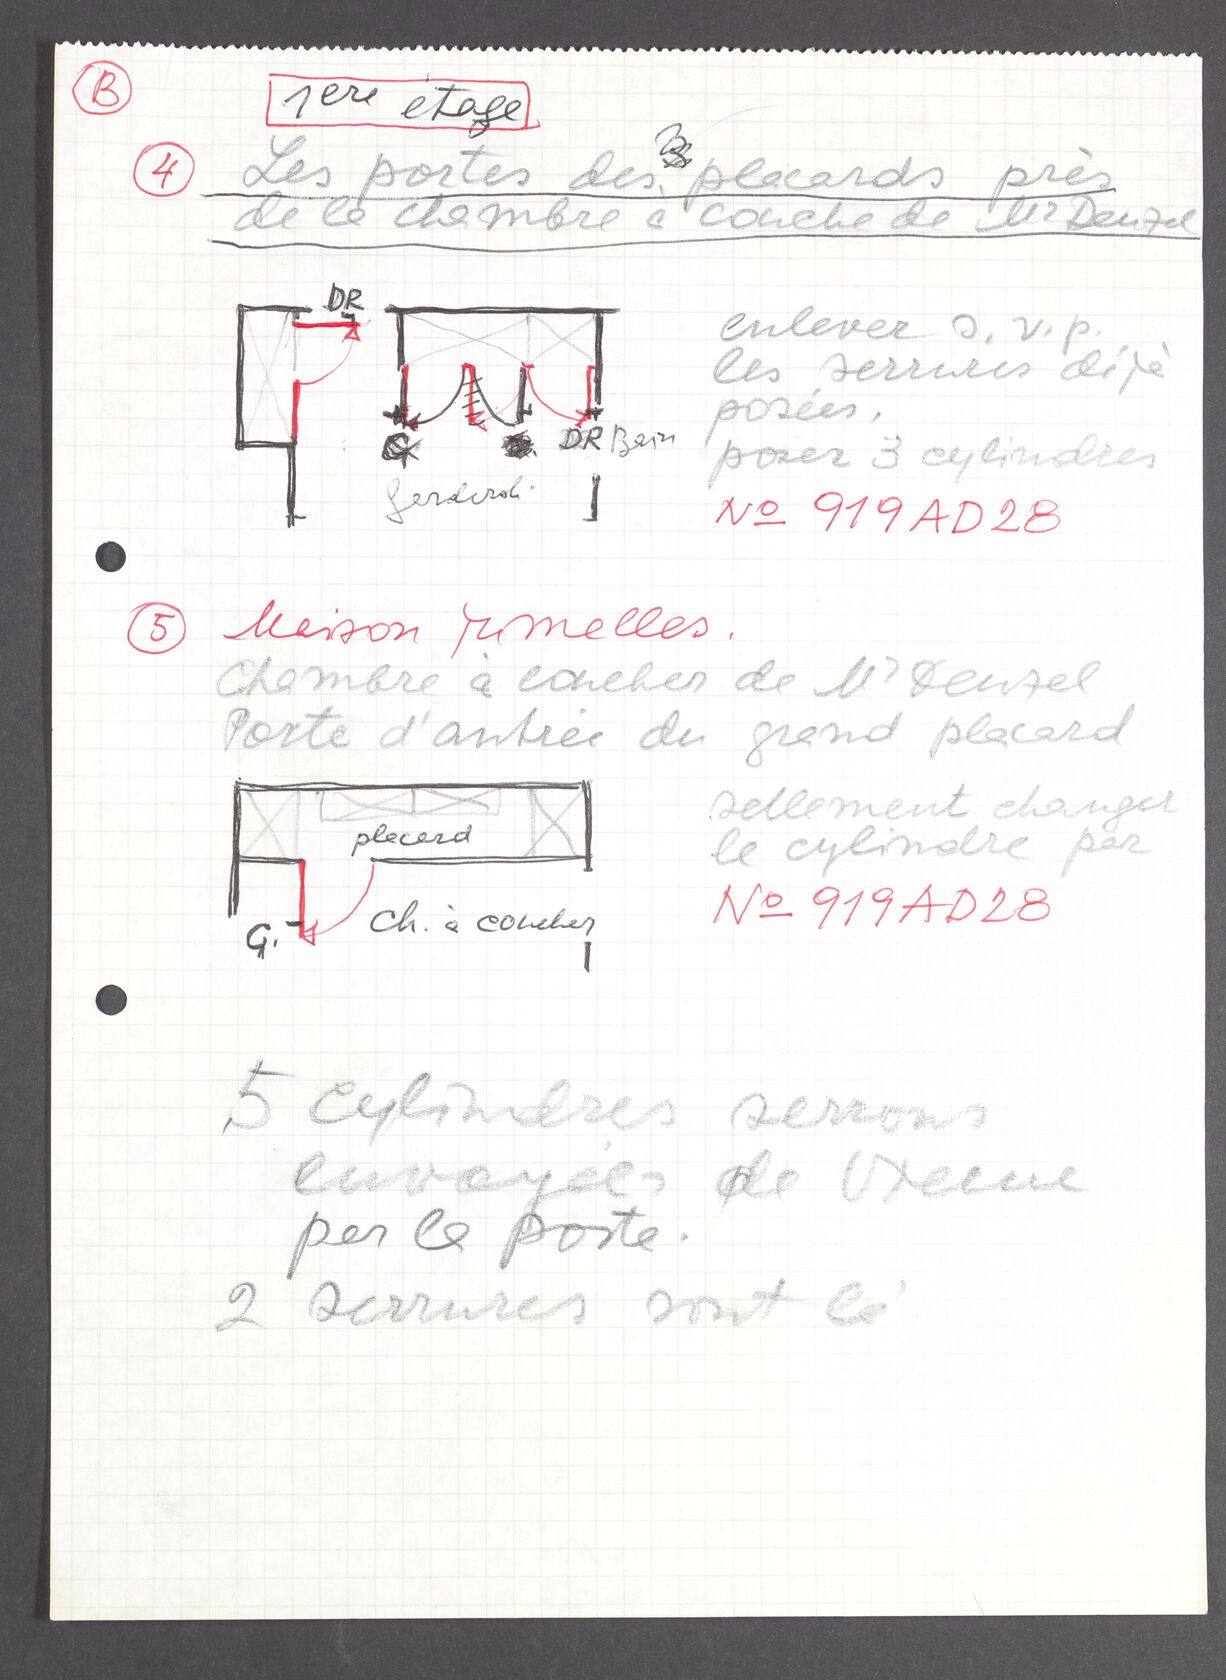 B
1ere étage
4 Les portes des 3 placards près
de la chambre à couche de Mr Denzel
DR
G
DR Bain
enlever s.v.p.
les serrures déjà
posées.
poser 3 cylindres
No 919AD28
5 Maison jumelles.
Chambre à coucher de Mr Denzel
Porte d'antrée du grand placard
placard
G.
Ch. à coucher
sellement changer
le cylindre par
No 919AD28
5 cylindres serrons
envoyées de Vienne
par la poste.
2 serrures sont là